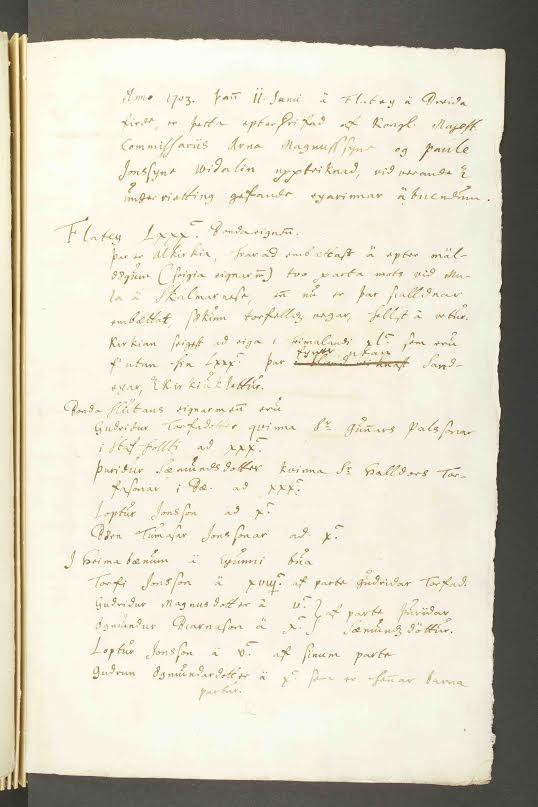 Anno 1703. þañ 11. Junii ä Flatey ä Breida
firde, er þetta epterskrifad af Kongl. Majest.
Commissariis Arna Magnussyne og Paule
Jonssyne Widalin upptriknad, vid verande &
under rietting gefande eyarinnar äbuendum.
Flatey Lxxxc. Bondaeignum.
þar er alkirkia, hvar ad embættast ä epter mäl-
dögum (seigia eignarm̃) tvo parta mots vid Mu-
la ä Skalmarnese, eñ nu er þar sialldnar
embættat, sökum torfelldz vegar, hellst ä vetur.
Kirkian seigest ad eiga i heimalandi xc. sem eru
f utan þau Lxxxc. þar fyrer utan Sand-
eyar, & Kirkiuklettur.
Bonda hlutans eignarmenn eru
Gudridur Torfadotter qvinna Sr. Gunnars Palssonar
i Stafhollti ad xxxc.
þuridur Sæmundsdotter kvinna Sr Halldors Tor-
fasonar i Bæ. ad xxxc.
Loptur Jonsson ad xc.
Börn Tumasar Jonssonar ad. xc.
I heimabænum ä Eyunni bua
Torfi Jonsson ä af parte Gudridar Torfad.
Gudridur Magnusdotter ä vc.
Ogmundur Biarnason ä xc. } af parte þuridar Sæmundz dottur.
Loptur Jonsson ä vc. af sinum parte
Gudrun Ogmundardotter ä xc. sem er hennar barna
partur.